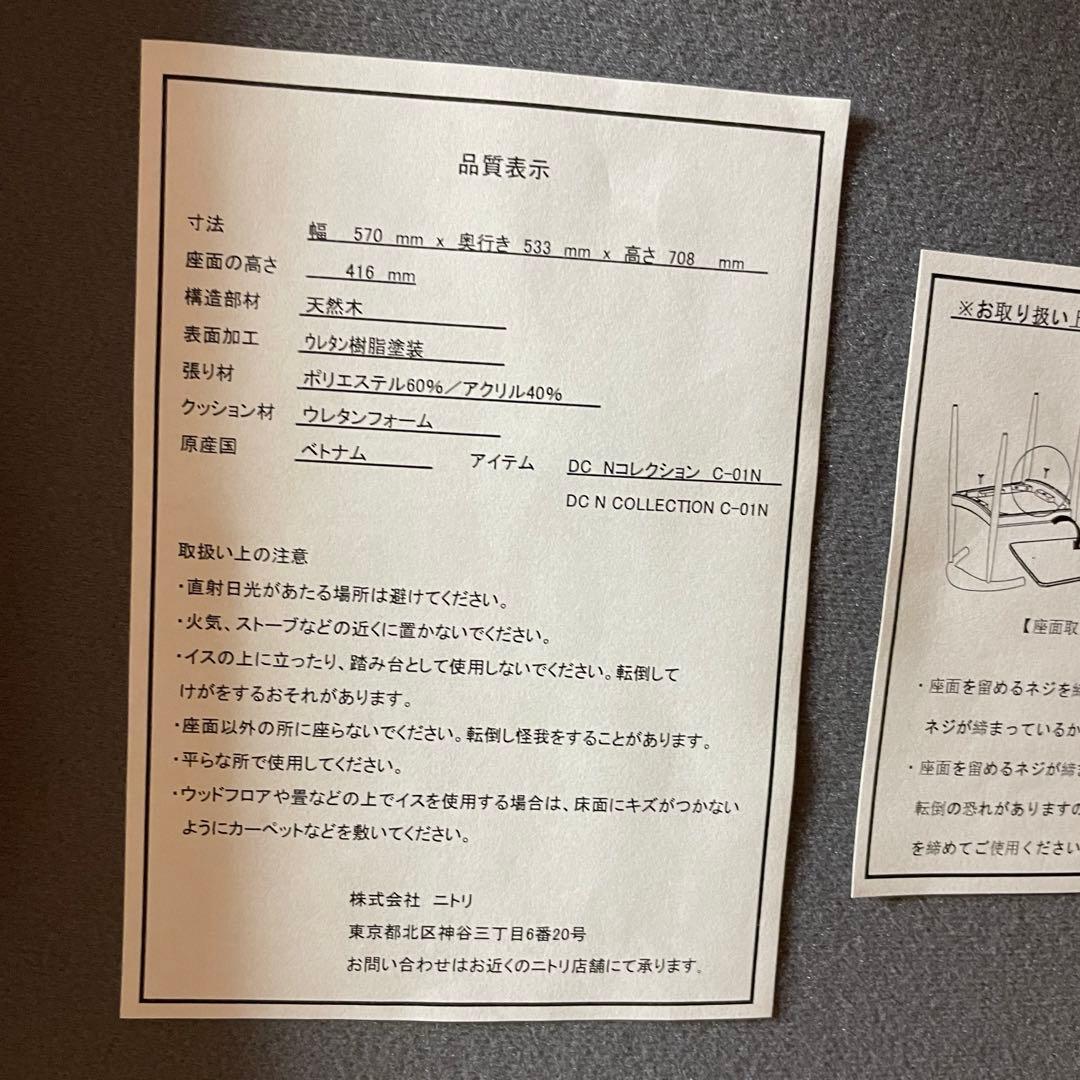 品質表示
寸法 幅 570 mm x 奥行き 533 mm x 高さ 708 mm
座面の高さ 416 mm
構造部材 天然木
表面加工 ｳﾚﾀﾝ樹脂塗装
張り材 ポリエステル60%／アクリル40%
クッション材 ウレタンフォーム
原産国 ベトナム アイテム DC Nコレクション C-01N
DC N COLLECTION C-01N
取扱い上の注意
・直射日光があたる場所は避けてください。
・火気、ストーブなどの近くに置かないでください。
・イスの上に立ったり、踏み台として使用しないでください。転倒して
けがをするおそれがあります。
・座面以外の所に座らないでください。転倒し怪我をすることがあります。
・平らな所で使用してください。
・ウッドフロアや畳などの上でイスを使用する場合は、床面にキズがつかない
ようにカーペットなどを敷いてください。
株式会社 ニトリ
東京都北区神谷三丁目6番20号
お問い合わせはお近くのニトリ店舗にて承ります。
※お取り扱い上
【座面取
・座面を留めるネジを締
ネジが締まっているか
・座面を留めるネジが締
転倒の恐れがありますの
を締めてご使用ください